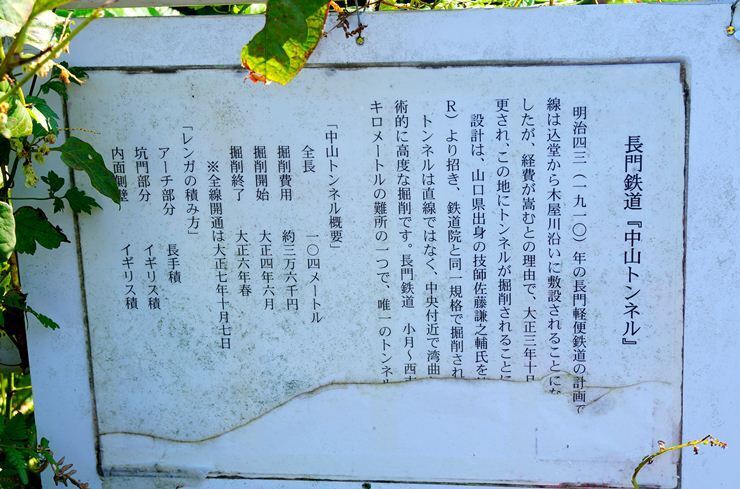 長門鉄道『中山トンネル』
明治四三（一九一〇）年の長門軽便鉄道の計画で
線は込堂から木屋川沿いに敷設されることにな
したが、経費が嵩むとの理由で、大正三年十月
更され、この地にトンネルが掘削されることに
設計は、山口県出身の技師佐藤謙之輔氏を
R）より招き、鉄道院と同一規格で掘削され
トンネルは直線ではなく、中央付近で湾曲
術的に高度な掘削です。長門鉄道 小月～西市
キロメートルの難所の一つで、唯一のトンネル
「中山トンネル概要」
全長 一〇四メートル
掘削費用 約三万六千円
掘削開始 大正四年六月
掘削終了 大正六年春
※全線開通は大正七年十月七日
「レンガの積み方」
アーチ部分 長手積
坑門部分 イギリス積
内面側壁 イギリス積